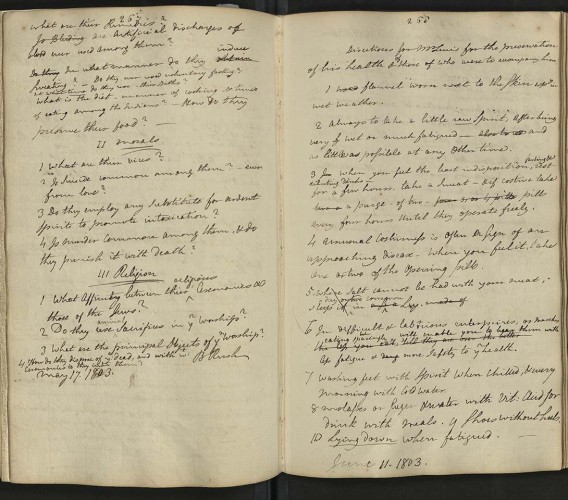 what are their Remedies?
Is Bleeding are Artificial discharges of
blood ever used among them?
In what manner do they induce
Sweating? Do they ever use voluntary fasting?
at what time do they use their Baths?
What is the diet, manner of cooking & times
of eating among the Indians? - How do they
preserve their food? -
II morals
1 What are their vices?
2 Is Suicide common among them? - ever
from love?
3 Do they employ any substitute for ardent
spirits to promote intoxication?
4 Is murder common among them, & do
they punish it with death?
III Religion
1 What Affinity between their religious Ceremonies &
those of the Jews?
2 Do they use animal Sacrifices in ye worship?
3 What are the principal Objects of yr worship?
4 How do they dispose of yr dead, and with wt
Ceremonies do they inter them?
B Rush
May 17 1803.
258
Directions for Mr Lewis for the preservation
of his health & those of who were to accompany him
1 flannel worn next to the Skin espy in
wet weather.
2 Always to take a little raw Spirit after being
very wet or much fatigued - and
as little as possible at any other time.
3 When you feel the least indisposition, fast
for a few hours. take a Sweat - if costive take
a purge of two pills
every four hours until they operate freely.
4 Unusual Costiveness is often a sign of an
approaching disease - When you feel it, take
one or two of the opening pills.
5 where Salt cannot be had with your meat,
6 In difficult & laborious enterprises, or marches
eating sparingly will enable you to bear them with
less fatigue & more safety to yr health.
7 Washing feet with Spirit when chilled, & every
morning with cold water.
8 molasses or Sugar & water with Vit. Acid for
drink with meals. 9 Shoes without heels
10 Lying down when fatigued. -
June 11 - 1803.